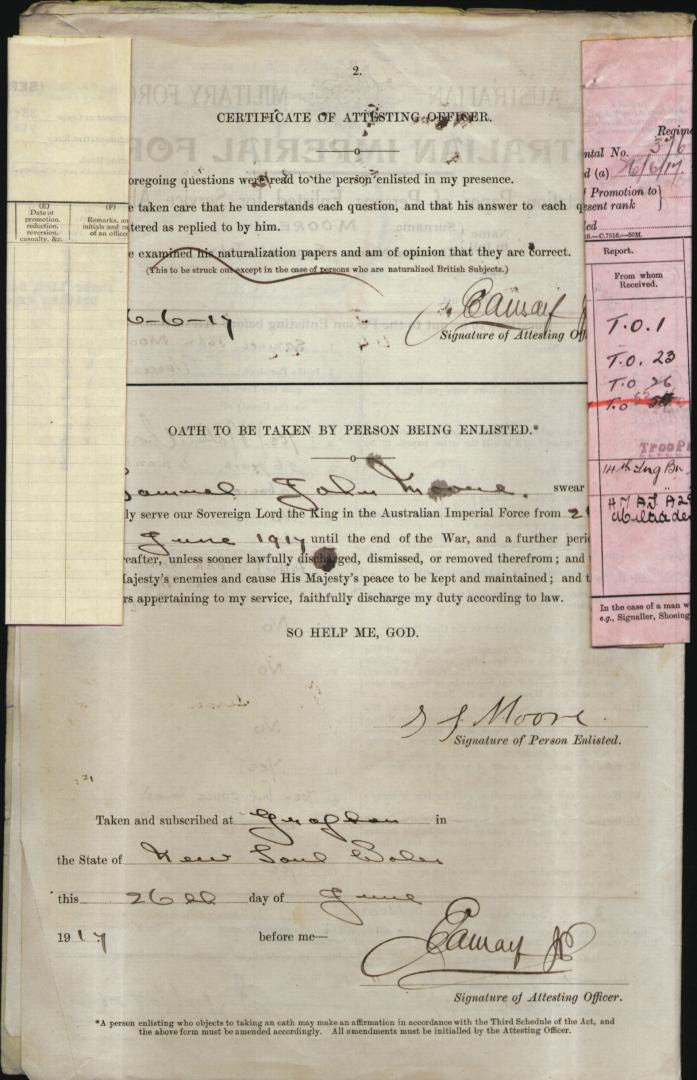 2.
CERTIFICATE OF ATTESTING OFFICER.
oregoing questions were read to the person enlisted in my presence.
e taken care that he understands each question, and that his answer to each q
tered as replied to by him.
e examined his naturalization papers and am of opinion that they are correct.
(This to be struck out except in the case of persons who are naturalized British Subjects.)
6-6-17
Signature of Attesting Off
OATH TO BE TAKEN BY PERSON BEING ENLISTED.*
Samuel John Moore. swear
ly serve our Sovereign Lord the King in the Australian Imperial Force from 2
June 1917 until the end of the War, and a further peri
eafter, unless sooner lawfully discharged, dismissed, or removed therefrom; and
Majesty's enemies and cause His Majesty's peace to be kept and maintained; and t
rs appertaining to my service, faithfully discharge my duty according to law.
SO HELP ME, GOD.
S J Moore.
Signature of Person Enlisted.
Taken and subscribed at Grafton in
the State of New Sout Wales
this 26th day of June
1917 before me—
Signature of Attesting Officer.
*A person enlisting who objects to taking an oath may make an affirmation in accordance with the Third Schedule of the Act, and
the above form must be amended accordingly. All amendments must be initialled by the Attesting Officer.
(E)
Date of
promotion,
reduction,
reversion,
casualty, &c.
(F)
Remarks, an
initials and ra
of an officer
Regime
ental No. 376
d (a) 26/6/17.
Promotion to
esent rank
ed
Report.
From whom
Received.
T.O. 1
T.O. 23
T.O 26
T.O
TrooP
14th Trg Bn
In the case of a man w
e.g., Signaller, Shoeing